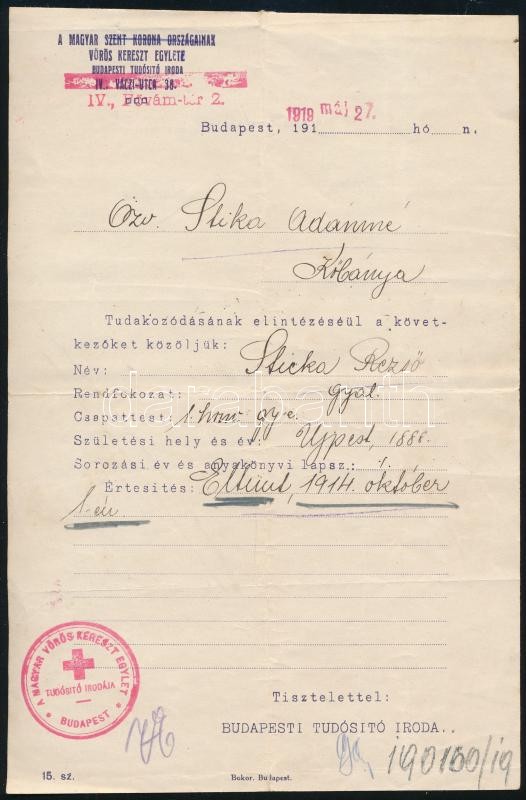 A MAGYAR SZENT KORONA ORSZÁGAINAK
VÖRÖS KERESZT EGYLETE
BUDAPESTI TUDÓSÍTÓ IRODA
IV., VÁCZI-UTCA 38.
IV., Fővám-tér 2.
1919 máj 27.
Budapest, 191 hó n.
Özv. Stika Adámné
Kőbánya
Tudakozódásának elintézéséül a követ-
kezőket közöljük:
Név: Sticka Rezső
Rendfokozat: gyal.
Csapattest: 1. honv. gy. e.
Születési hely és év: Ujpest, 1888.
Sorozási év és anyakönyvi lapsz.:
Értesítés: Eltünt, 1914. október
1-én
darabanth
A MAGYAR VÖRÖS KERESZT EGYLET
TUDÓSÍTÓ IRODÁJA
BUDAPEST
Tisztelettel:
BUDAPESTI TUDÓSÍTÓ IRODA..
190160/19
15. sz.
Bokor. Budapest.